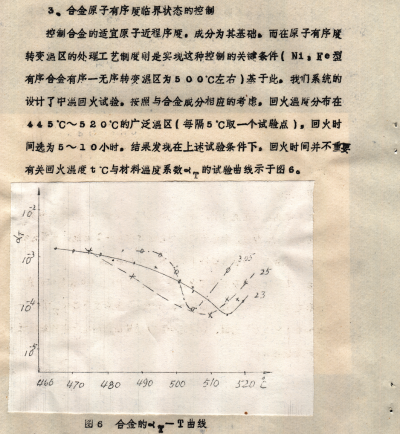 3、合金原子有序度临界状态的控制
控制合金的适宜原子近程序度，成分为其基础。而在原子有序度
转变温区的处理工艺制度则是实现这种控制的关键条件（Ni₃Fe型
有序合金有序一无序转变温区为500℃左右）基于此，我们系统的
设计了中温回火试验。按照与合金成分相应的考虑，回火温度分布在
445℃～520℃的广泛温区（每隔5℃取一个试验点），回火时
间选为5～10小时。结果发现在上述试验条件下。回火时间并不重要
有关回火温度t℃与材料温度系数αT的试验曲线示于图6。
αT
10⁻²
10⁻³
10⁻⁴
10⁻⁵
3.05
25
23
460 470 480 490 500 510 520 ℃
图6 合金的αT一T曲线